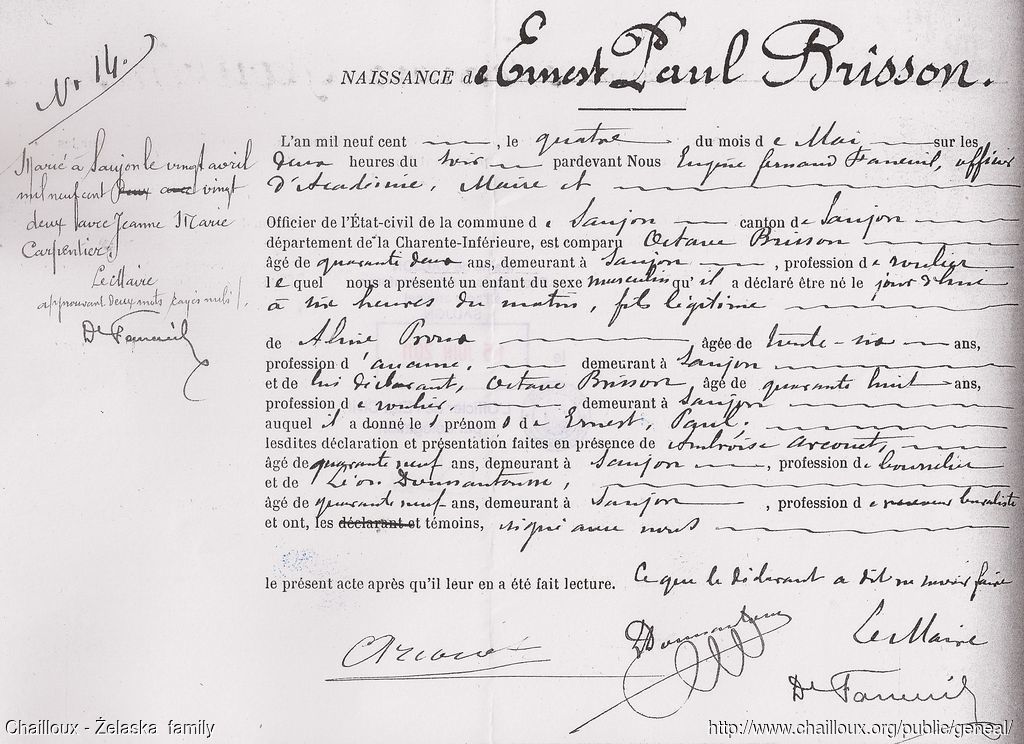 No 14.
NAISSANCE de Ernest Paul Brisson.
L'an mil neuf cent , le quatre du mois de Mai sur les
deux heures du soir pardevant Nous Eugène Fernand Faneuil, officier
d'Académie, Maire et
Officier de l'État-civil de la commune de Saujon canton de Saujon
département de la Charente-Inférieure, est comparu Octave Brisson
âgé de quarante deux ans, demeurant à Saujon , profession de roulier
lequel nous a présenté un enfant du sexe masculin qu'il a déclaré être né le jour d'hier
à heures du matin, fils légitime
de Aline , âgée de trente-six ans,
profession d' demeurant à Saujon
et de lui déclarant, Octave Brisson, âgé de quarante huit ans,
profession de roulier, demeurant à Saujon
auquel il a donné les prénoms de Ernest, Paul;
lesdites déclaration et présentation faites en présence de Ambroise Arconet,
âgé de quarante neuf ans, demeurant à Saujon , profession de bourrelier
et de Léon
âgé de quarante neuf ans, demeurant à Saujon , profession de receveur buraliste
et ont, les déclarant et témoins, signé avec nous
le présent acte après qu'il leur en a été fait lecture. Ce que le déclarant a dit ne savoir faire
Le Maire
Dr Faneuil
Marié à Saujon le vingt avril
mil neuf cent deux avec vingt
deux avec Jeanne Marie
Carpentier
Le Maire
approuvant deux mots rayés nuls
Dr Faneuil
Chailloux - Żelaska family
http://www.chailloux.org/public/geneal/